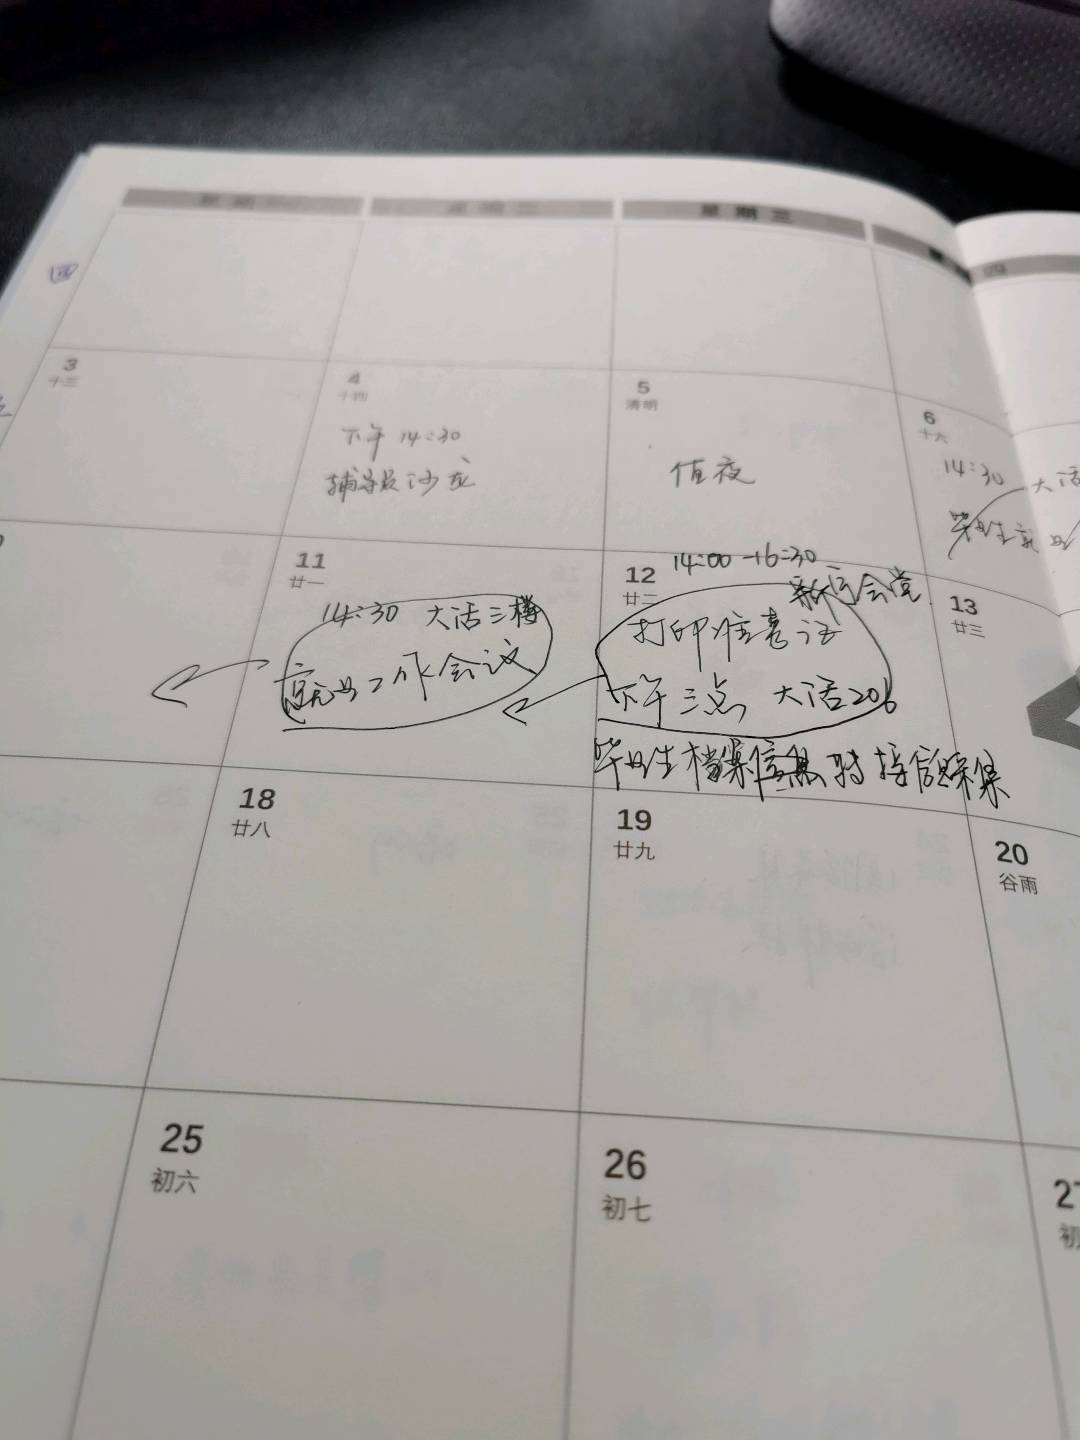 星期一
星期二
星期三
四
3
十三
4
十四
下午 14:30
辅导员沙龙
5
清明
值夜
6
十六
14:30
大活
毕业生就业
11
廿一
14:30 大活三楼
就业工作会议
12
廿二
14:00-16:30
打印准考证
下午三点 大活206
毕业生档案信息
13
廿三
18
廿八
19
廿九
20
谷雨
25
初六
26
初七
初